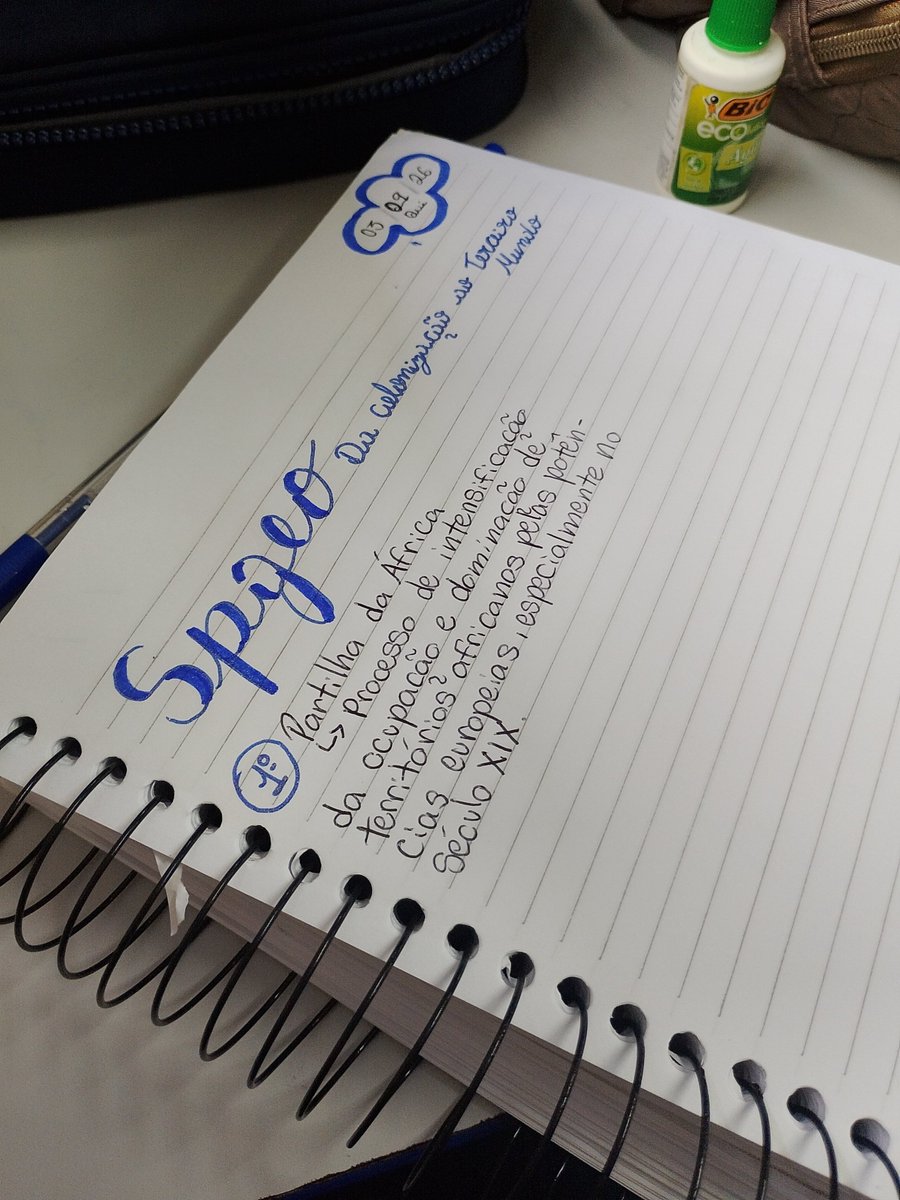 03 09 26
Qui
Spigeo
Da colonização ao Terceiro
Mundo
1º Partilha da África
↳ Processo de intensificação
da ocupação e dominação de
territórios africanos pelas potên-
cias europeias, especialmente no
Século XIX.
BIC
eco